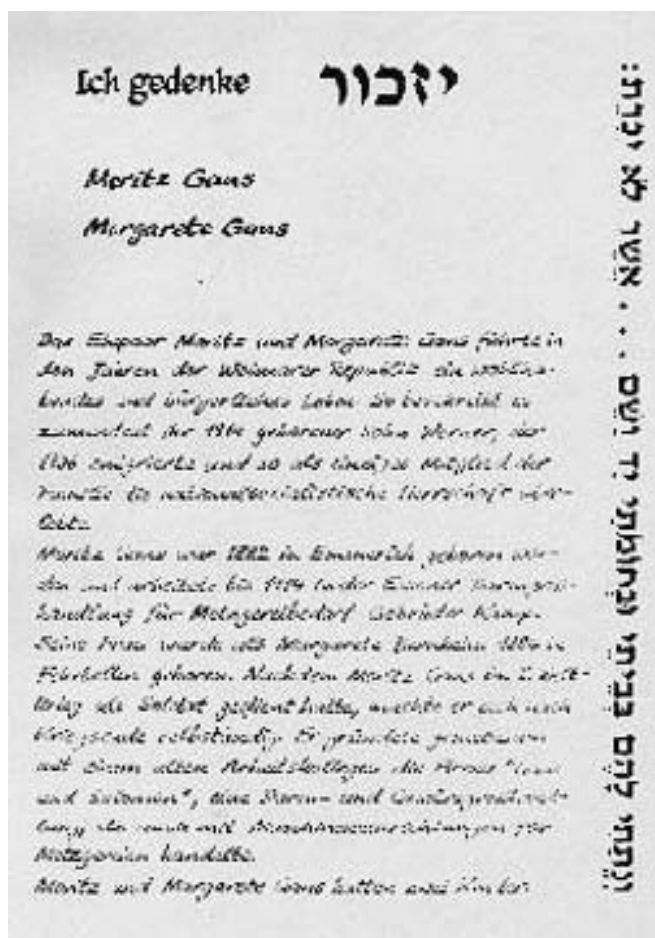 Ich gedenke יזכור
Moritz Gans
Margarete Gans
Das Ehepaar Moritz und Margarete Gans führte in
den Jahren der Weimarer Republik ein wohlha-
bendes und bürgerliches Leben. So berichtet es
zumindest der 1914 geborener Sohn Werner, der
1936 emigrierte und so als einziges Mitglied der
Familie die nationalsozialistische Herrschaft über-
lebte.
Moritz Gans war 1882 in Emmerich geboren wor-
den und arbeitete bis 1914 in der Essener
handlung für Metzgereibedarf Gebrüder Kamp.
Seine Frau wurde als Margarete in
Fehrbellin geboren. Nachdem Moritz Gans im 1. Welt-
krieg als Soldat gedient hatte, machte er sich nach
Kriegsende selbständig. Er gründete gemeinsam
mit einem alten Arbeitskollegen die Firma "Gans
und Salomon", eine Darm- und
die auch mit für
Metzgereien handelte.
Moritz und Margarete Gans hatten zwei Kinder.
ונתתי להם בביתי ובחומתי יד ושם . . . אשר לא יכרת: